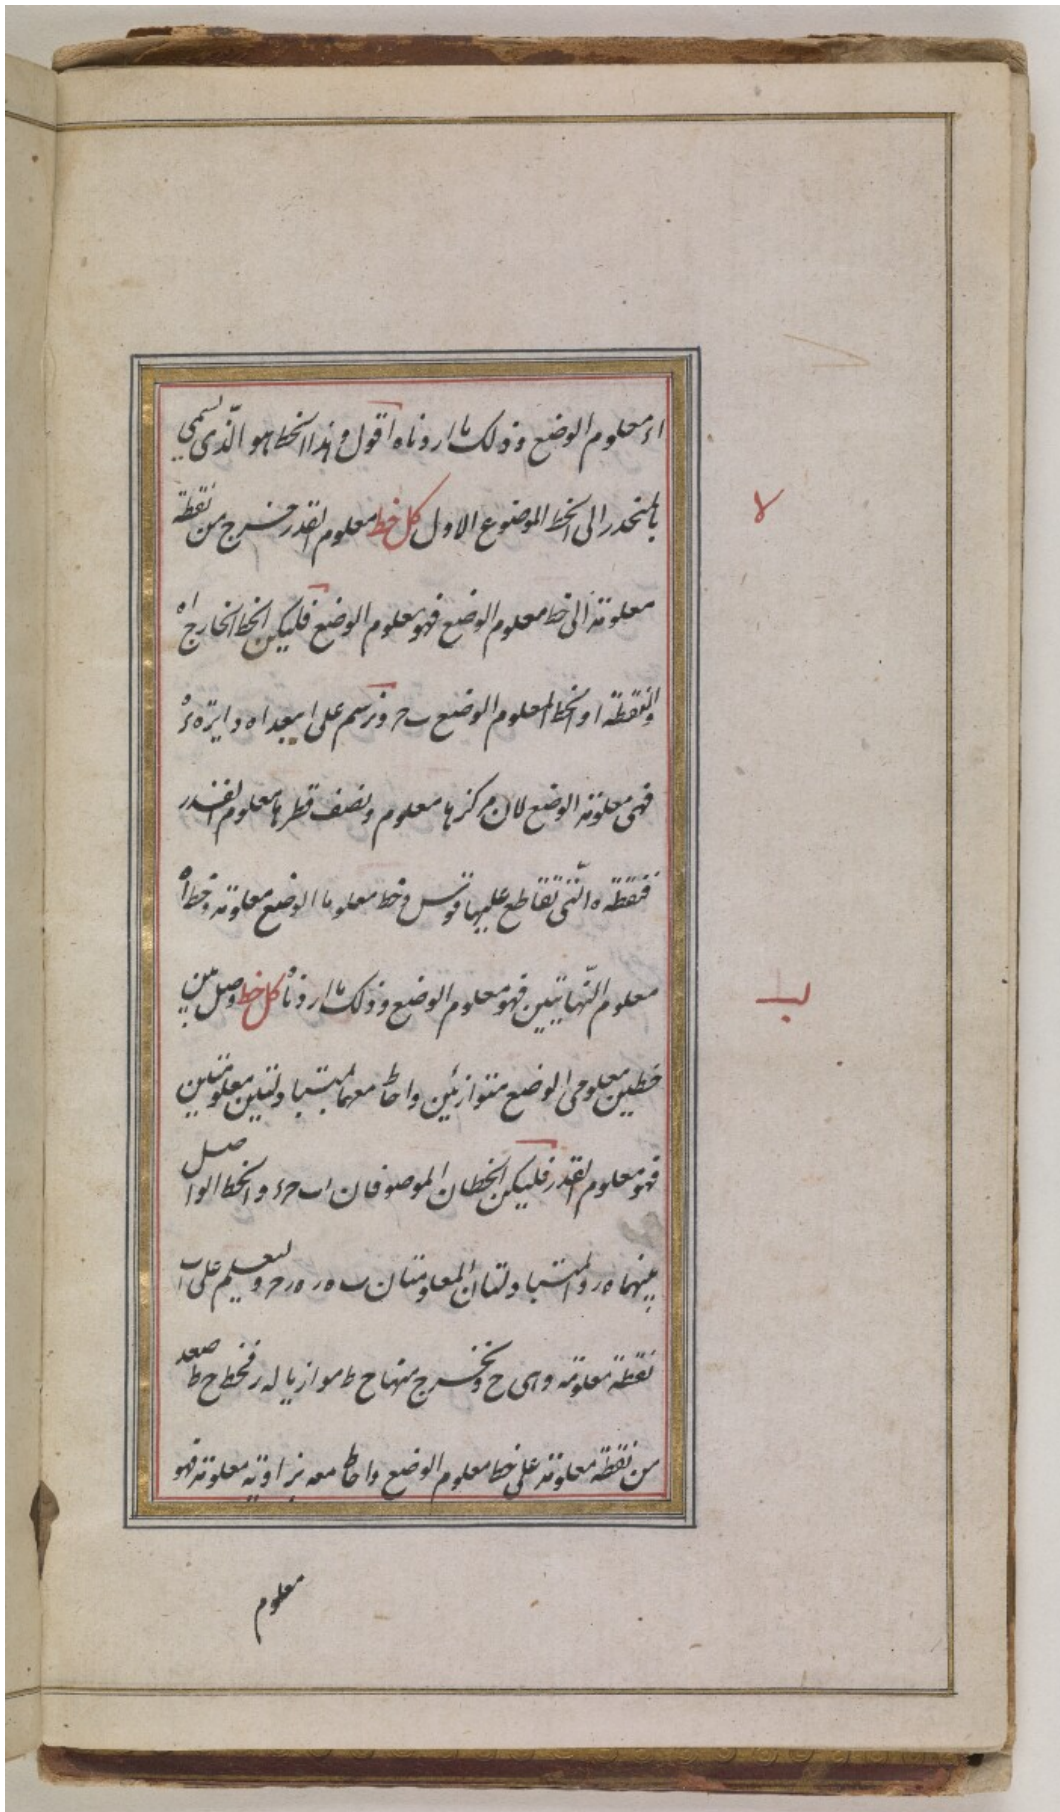 اء معلوم الوضع وذلك ما اردناه اقول وهذا الخط هو الذى يسمى
بالمنحدر الى الخط الموضوع الاول كل خط معلوم القدر خرج من نقطة
لا
معلومة الى خط معلوم الوضع فهو معلوم الوضع فليكن الخط الخارج اه
والنقطة ا والخط المعلوم الوضع ب ح ونرسم على ا ببعد اه دايرة ء ه
فهى معلومة الوضع لان مركزها معلوم ونصف قطرها معلوم القدر
فنقطة ه التى تقاطع عليها قوس وخط معلوما الوضع معلومة وخط اه
معلوم النهايتين فهو معلوم الوضع وذلك ما اردناه كل خط وصل بين
لب
خطين معلومى الوضع متوازيين واحاط معهما بمتبادلتين معلومتين
فهو معلوم القدر فليكن الخطان الموصوفان اب حء والخط الواصل
بينهما ه ر والمتبادلتان المعلومتان ب ه ر ه ر ح وليعلم على اب
نقطة معلومة وهى ح ونخرج منها ح ط موازيا له ر فخط ح ط صعد
من نقطة معلومة على خط معلوم الوضع واحاط معه بزاوية معلومة فهو
معلوم